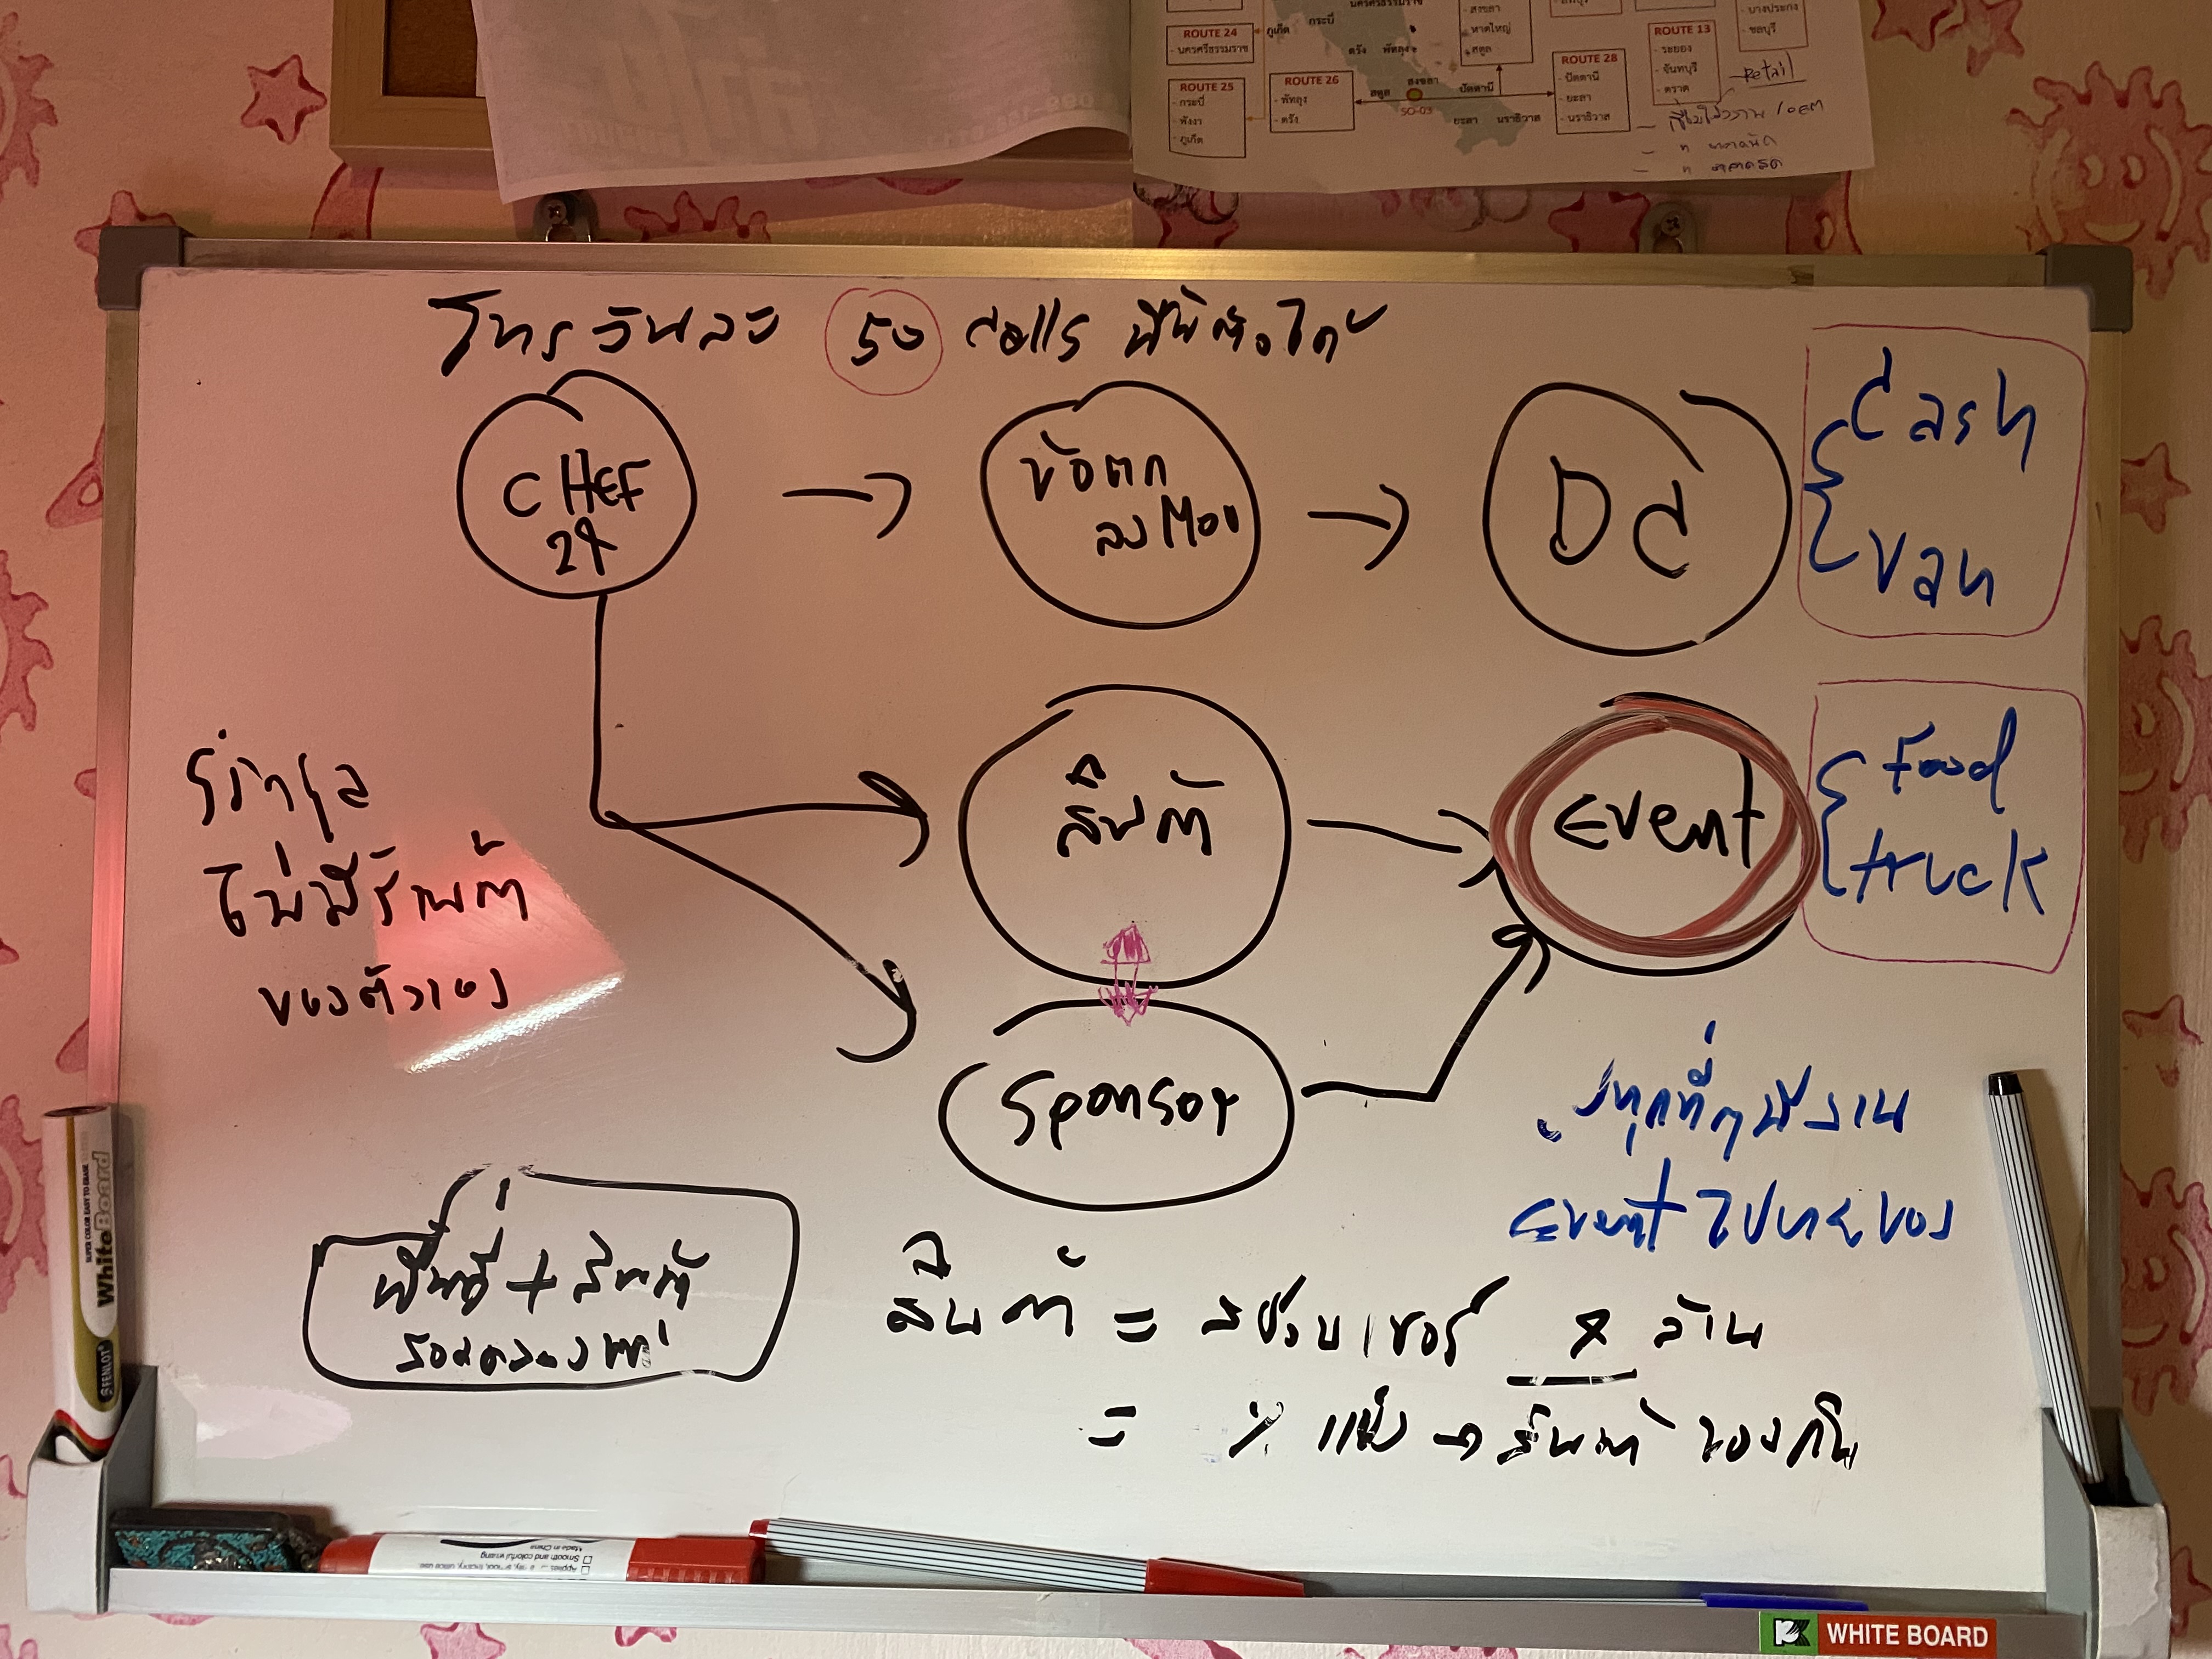 ROUTE 24
- นครศรีธรรมราช
ภูเก็ต
กระบี่
นครศรีธรรมราช
ตรัง
พัทลุง
- สงขลา
- หาดใหญ่
- สตูล
ROUTE 13
- ระยอง
- จันทบุรี
- ตราด
- บางประกง
- ชลบุรี
ROUTE 25
- กระบี่
- พังงา
- ภูเก็ต
ROUTE 26
- พัทลุง
- ตรัง
สตูล
สงขลา
SO-03
ปัตตานี
ยะลา
นราธิวาส
ROUTE 28
- ปัตตานี
- ยะลา
- นราธิวาส
Retail
- ที่ไม่ใช่งาน / OEM
- " ตลาดนัด
- " ตลาดสด
โทรวันละ 50 calls
CHEF
ข้อตก
ลง MOU
DC
Cash
Van
สินค้า
Event
Food
truck
รู้ข้อมูล
ไม่มีร้านค้า
ของตัวเอง
Sponsor
ทุกที่ๆมีงาน
Event ไปขายของ
พื้นที่ + สินค้า
สินค้า = สปอนเซอร์ X ล้าน
= % แบ่ง → สินค้า ของกิน
WhiteBoard
SUPER COLOR EASY TO ERASE
FENLOT
Smooth and colorful writing
Made in China
WHITE BOARD